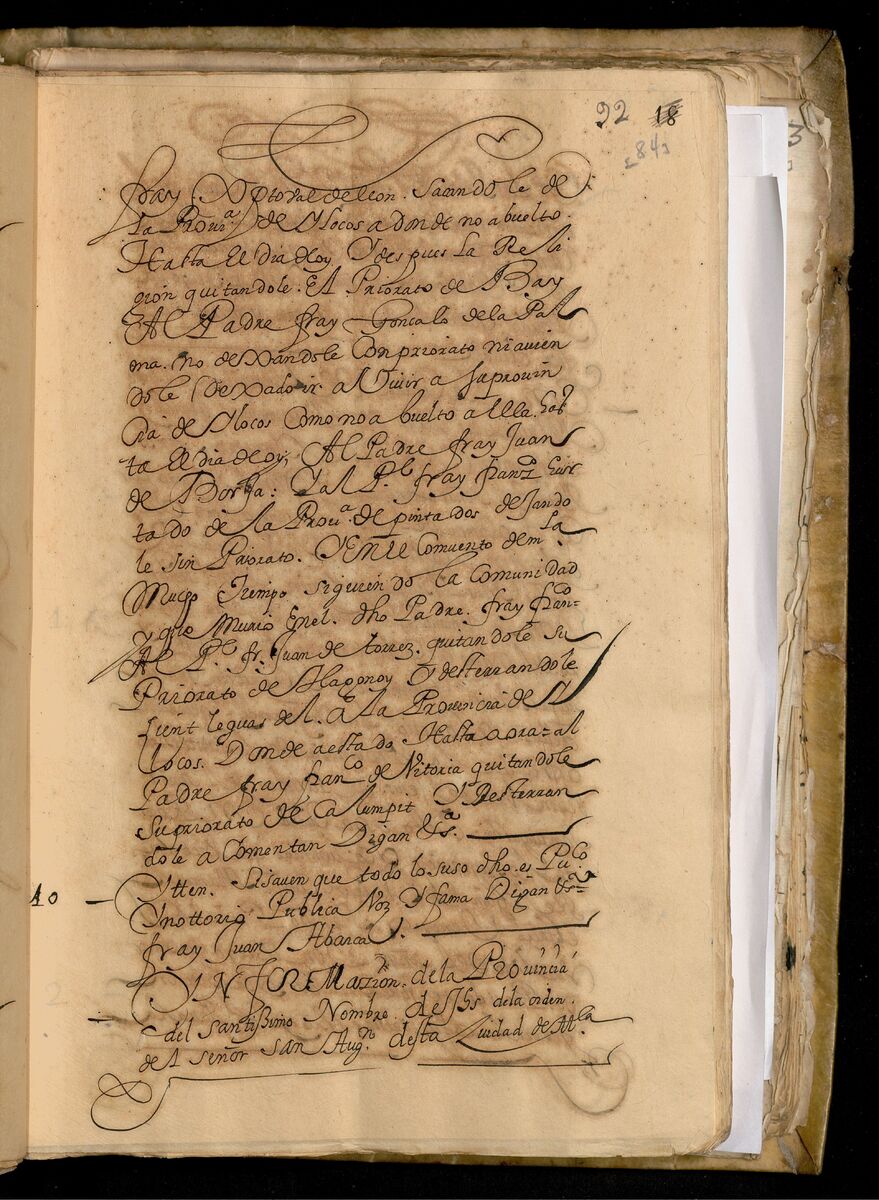 92 18
[84]
fray Xptoval de leon. Sacandole de
la Prouª de Ylocos a donde no a buelto
Hasta El dia de oy Y despues la Reli
gion quitandole. El Priorato de Bay
Al Padre fray Gonçalo de la Pal
ma. no dexandole Con priorato ni avien
dole dexado ir a Vivir a su provin
cia de Ylocos Como no a buelto a Ella has
ta El dia de oy, Al Padre fray Juan
de Borja: Y al Pe fray franco hur
tado de la Prouª de pintados dejando
le sin Priorato. Y En El Comvento de mla
Mucho Tiempo siguiendo la Comunidad
y q lo Murio En el. dho Padre. fray franco
Al Pe fr. Juan de torrez. quitandole su
Priorato de Hagonoy Y desterrandole
leguas de la Provincia de Y
locos. Donde a estado Hasta aora = al
Padre fray franco de Vitoria quitandole
su priorato de Calumpit Y Desterran
dole a Comentan Digan &ª
10 Ytten. Si saven que todo lo suso dho. es Puco
Y nottorio Publica Voz Y fama Digan &ª
fray Juan Abarca
YNforMazion. de la Provincia
del santissimo Nombre de Jhs de la orden.
del señor san Augn desta Ziudad de Mla